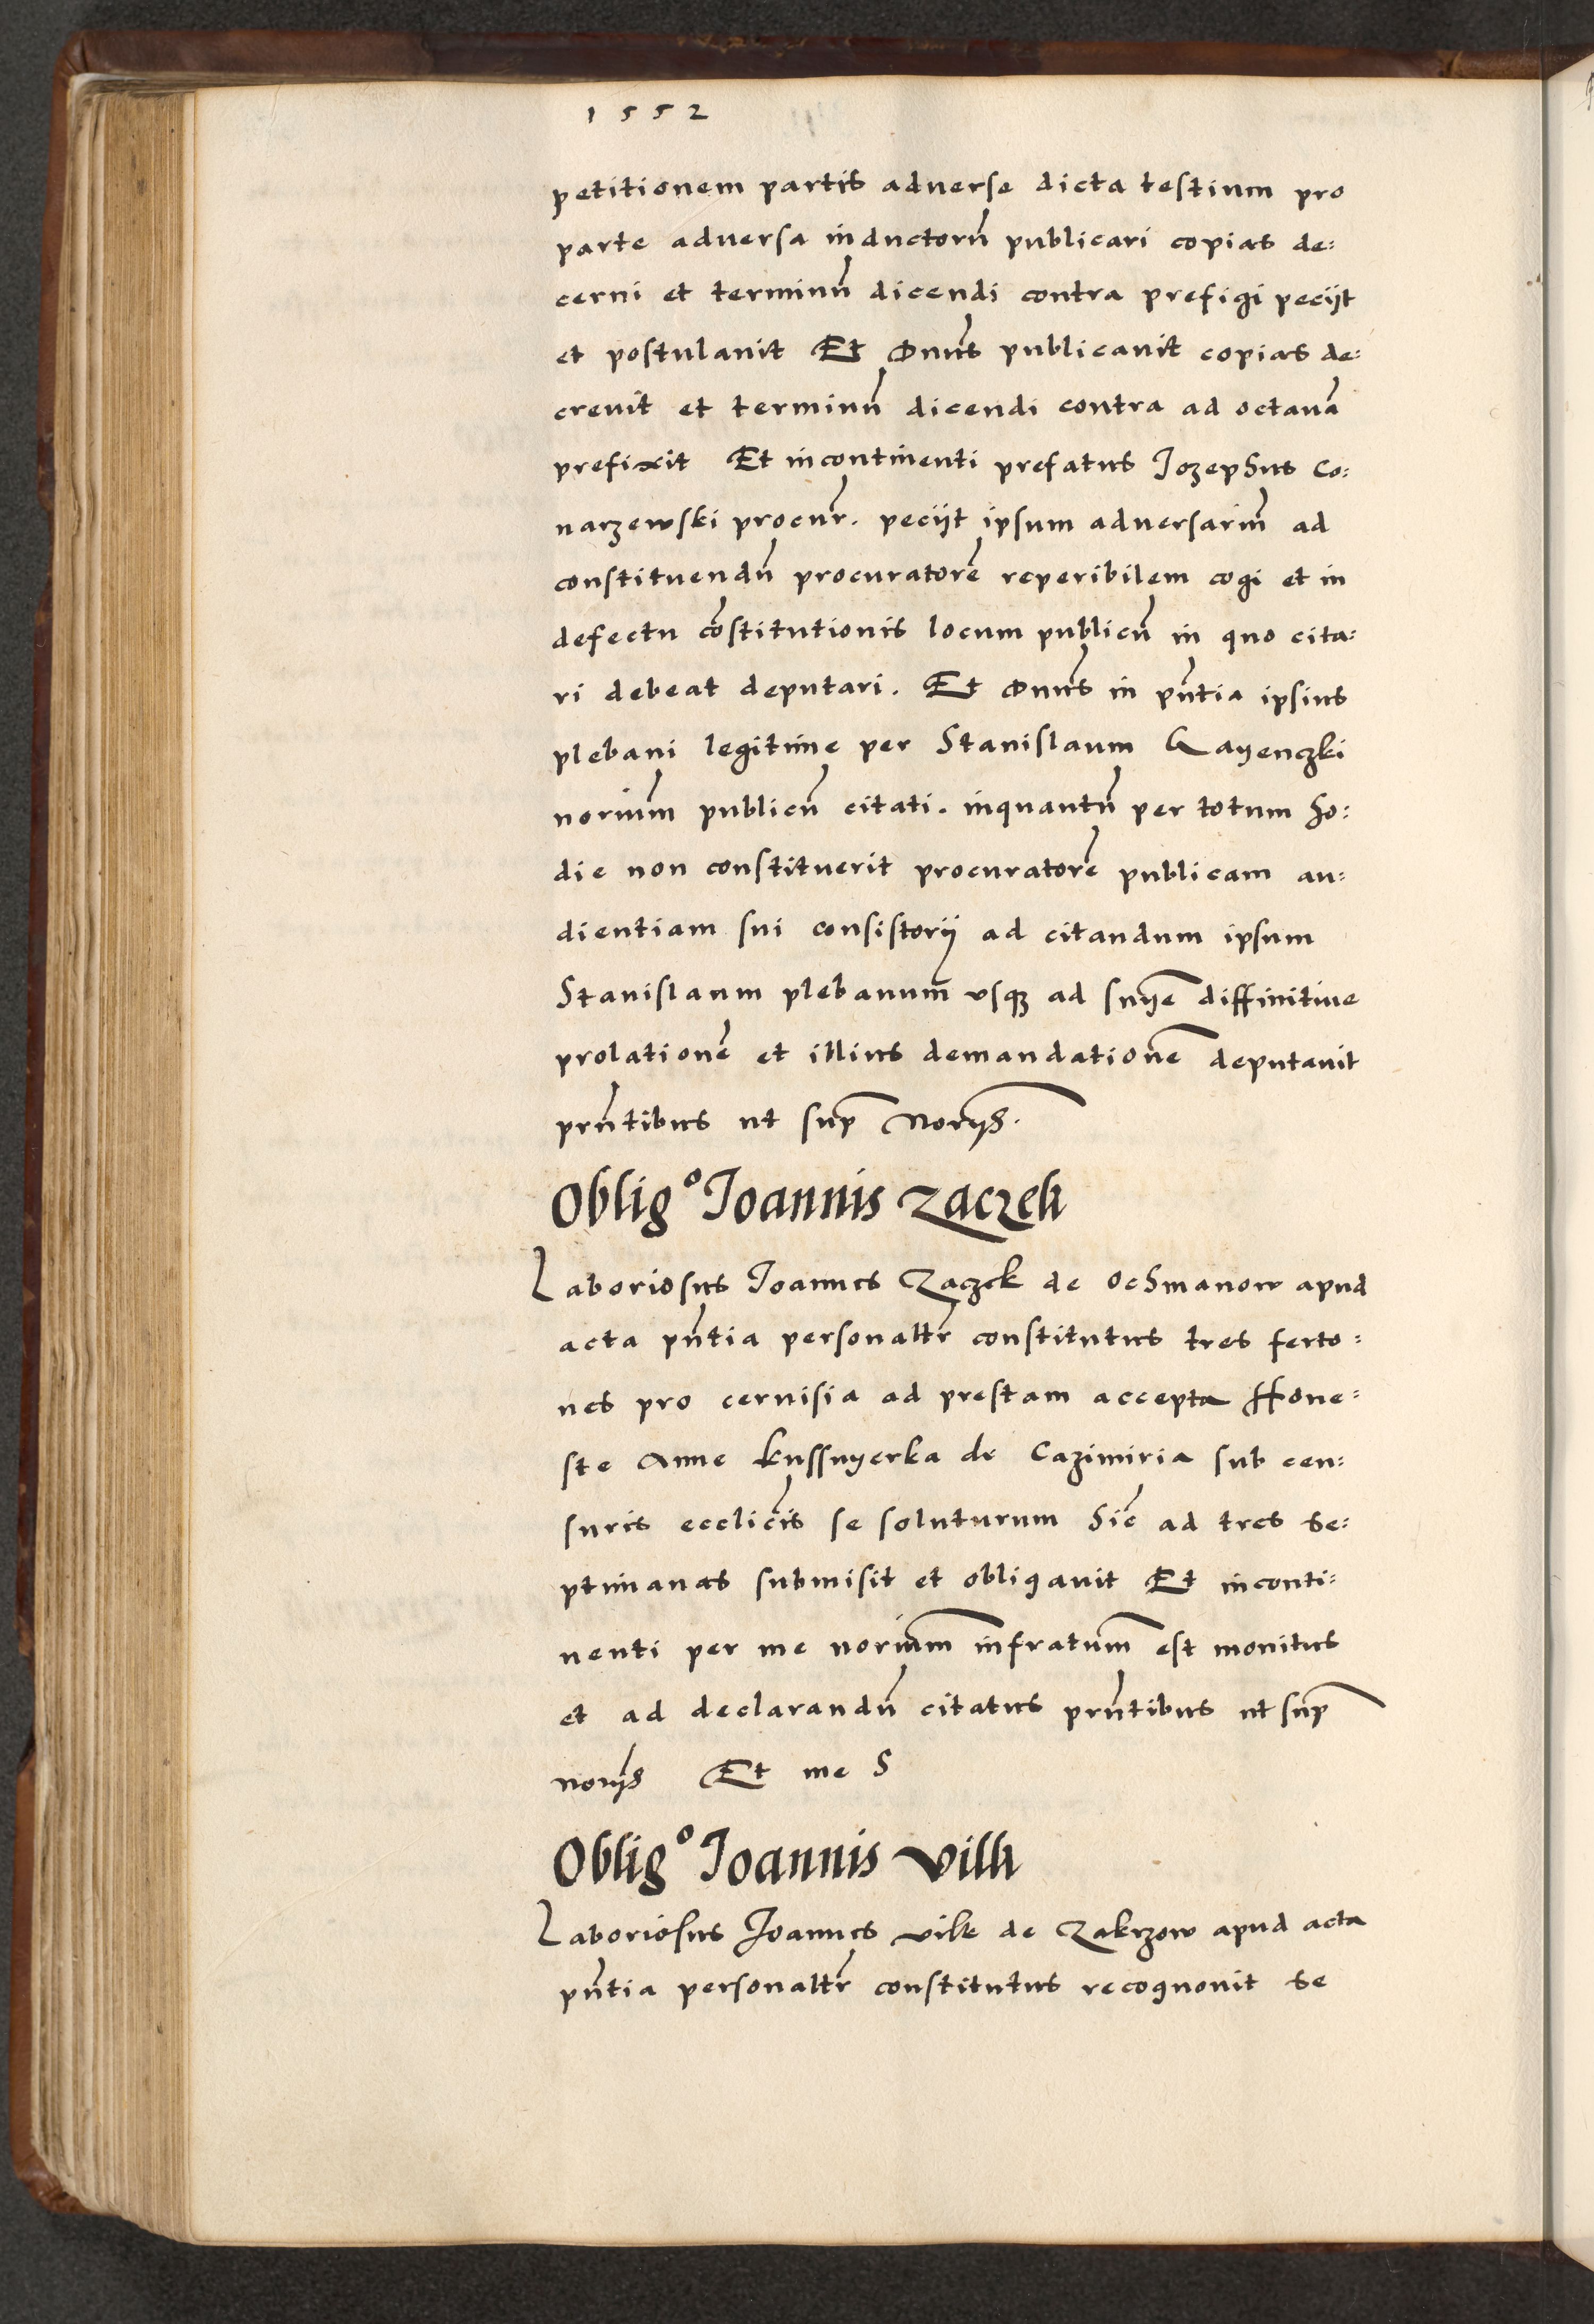 1552
petitionem partis adverse dicta testium pro
parte adversa inductorũ publicari copias de:
cerni et terminũ dicendi contra prefigi peciit
et postulavit Et Dnus publicavit copias de:
crevit et terminũ dicendi contra ad octavã
prefixit Et incontinenti prefatus Jozephus Co:
narzewski procur. peciit ipsum adversariũm ad
constituendũ procuratorẽ reperibilem cogi et in
defectu cõstitutionis locum publicũ in quo cita:
ri debeat deputari. Et Dnus in pñtia ipsius
plebani legitime per Stanislaum Gayenczki
norium publicũ citati. inquantũ per totum ho:
die non constituerit procuratorẽ publicam au:
dientiam sui consistorii ad citandum ipsum
Stanislaum plebanum usq3 ad snỹe diffinitive
prolationẽ et illius demandationẽ deputavit
prñtibus ut sup noriis.
Oblig° Joannis Zaczek
Laboriosus Joannes Zaczek de Ochmanow apud
acta pñtia personaltr constitutus tres ferto:
nes pro cervisia ad prestam accepta Hone:
ste Anne Kussnyerka de Cazimiria sub cen:
suris eccliciis se soluturum hĩc ad tres se:
ptimanas submisit et obligavit Et inconti:
nenti per me norium infratum est monitus
et ad declarandũ citatus prñtibus ut sup
noriis Et me S
Oblig° Joannis Vilk
Laboriosus Joannes Vilk de Zakrzow apud acta
pñtia personaltr constitutus recognovit se